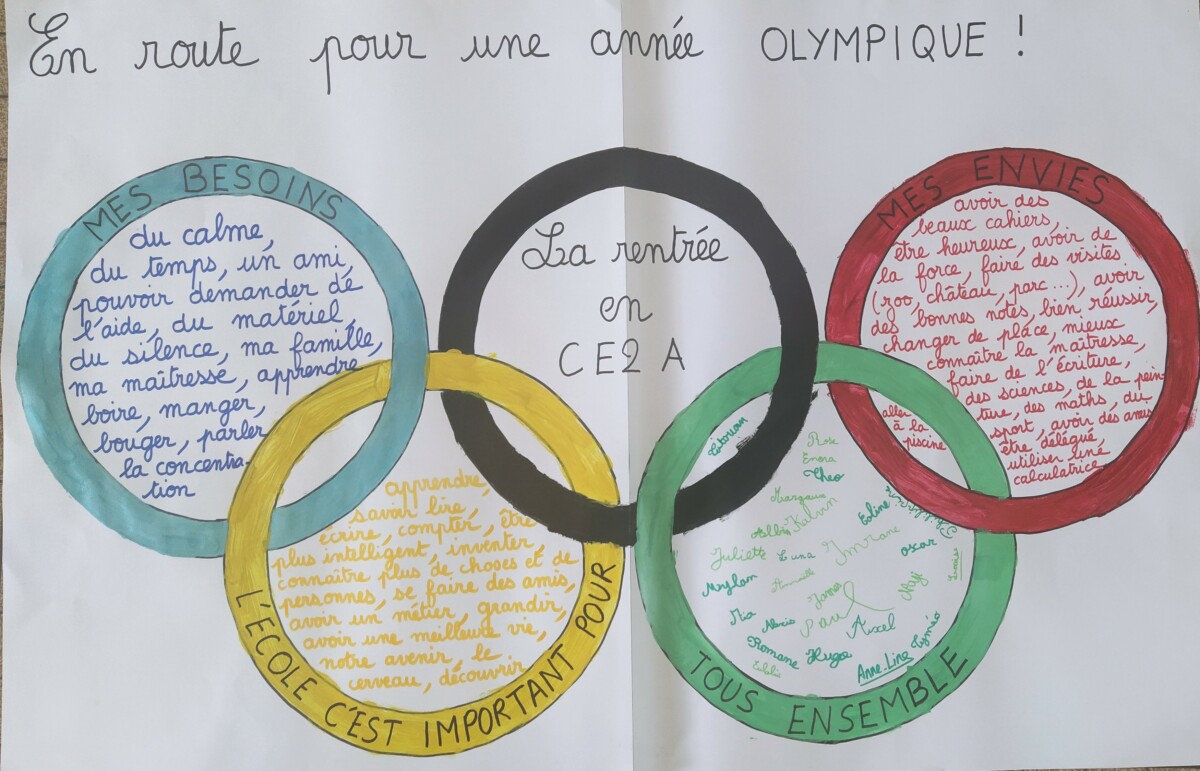 En route pour une année OLYMPIQUE !
MES BESOINS
du calme,
du temps, un ami,
pouvoir demander de
l'aide, du matériel,
du silence, ma famille,
ma maîtresse, apprendre
boire, manger,
bouger, parler
la concentra-
tion
La rentrée
en
CE2 A
MES ENVIES
avoir des
beaux cahiers,
être heureux, avoir de
la force, faire des visites
(zoo, château, parc...), avoir
des bonnes notes, bien réussir,
changer de place, mieux
connaître la maîtresse,
faire de l'écriture,
des sciences, de la pein-
ture, des maths, du
sport, avoir des amis
être délégué,
utiliser une
calculatrice
aller
à la
piscine
L'ÉCOLE C'EST IMPORTANT POUR
apprendre,
savoir lire,
écrire, compter, être
plus intelligent, inventer,
connaître plus de choses et de
personnes, se faire des amis,
avoir un métier, grandir,
avoir une meilleure vie,
notre avenir, le
cerveau, découvrir
TOUS ENSEMBLE
Rose
Enora
Theo
Margaux
Kalvin
Eoline
Juliette
Luna
Imrane
oscar
Mia
Alexis
James
Paul
Axel
Romane
Hugo
Anne-Line
Tyméo